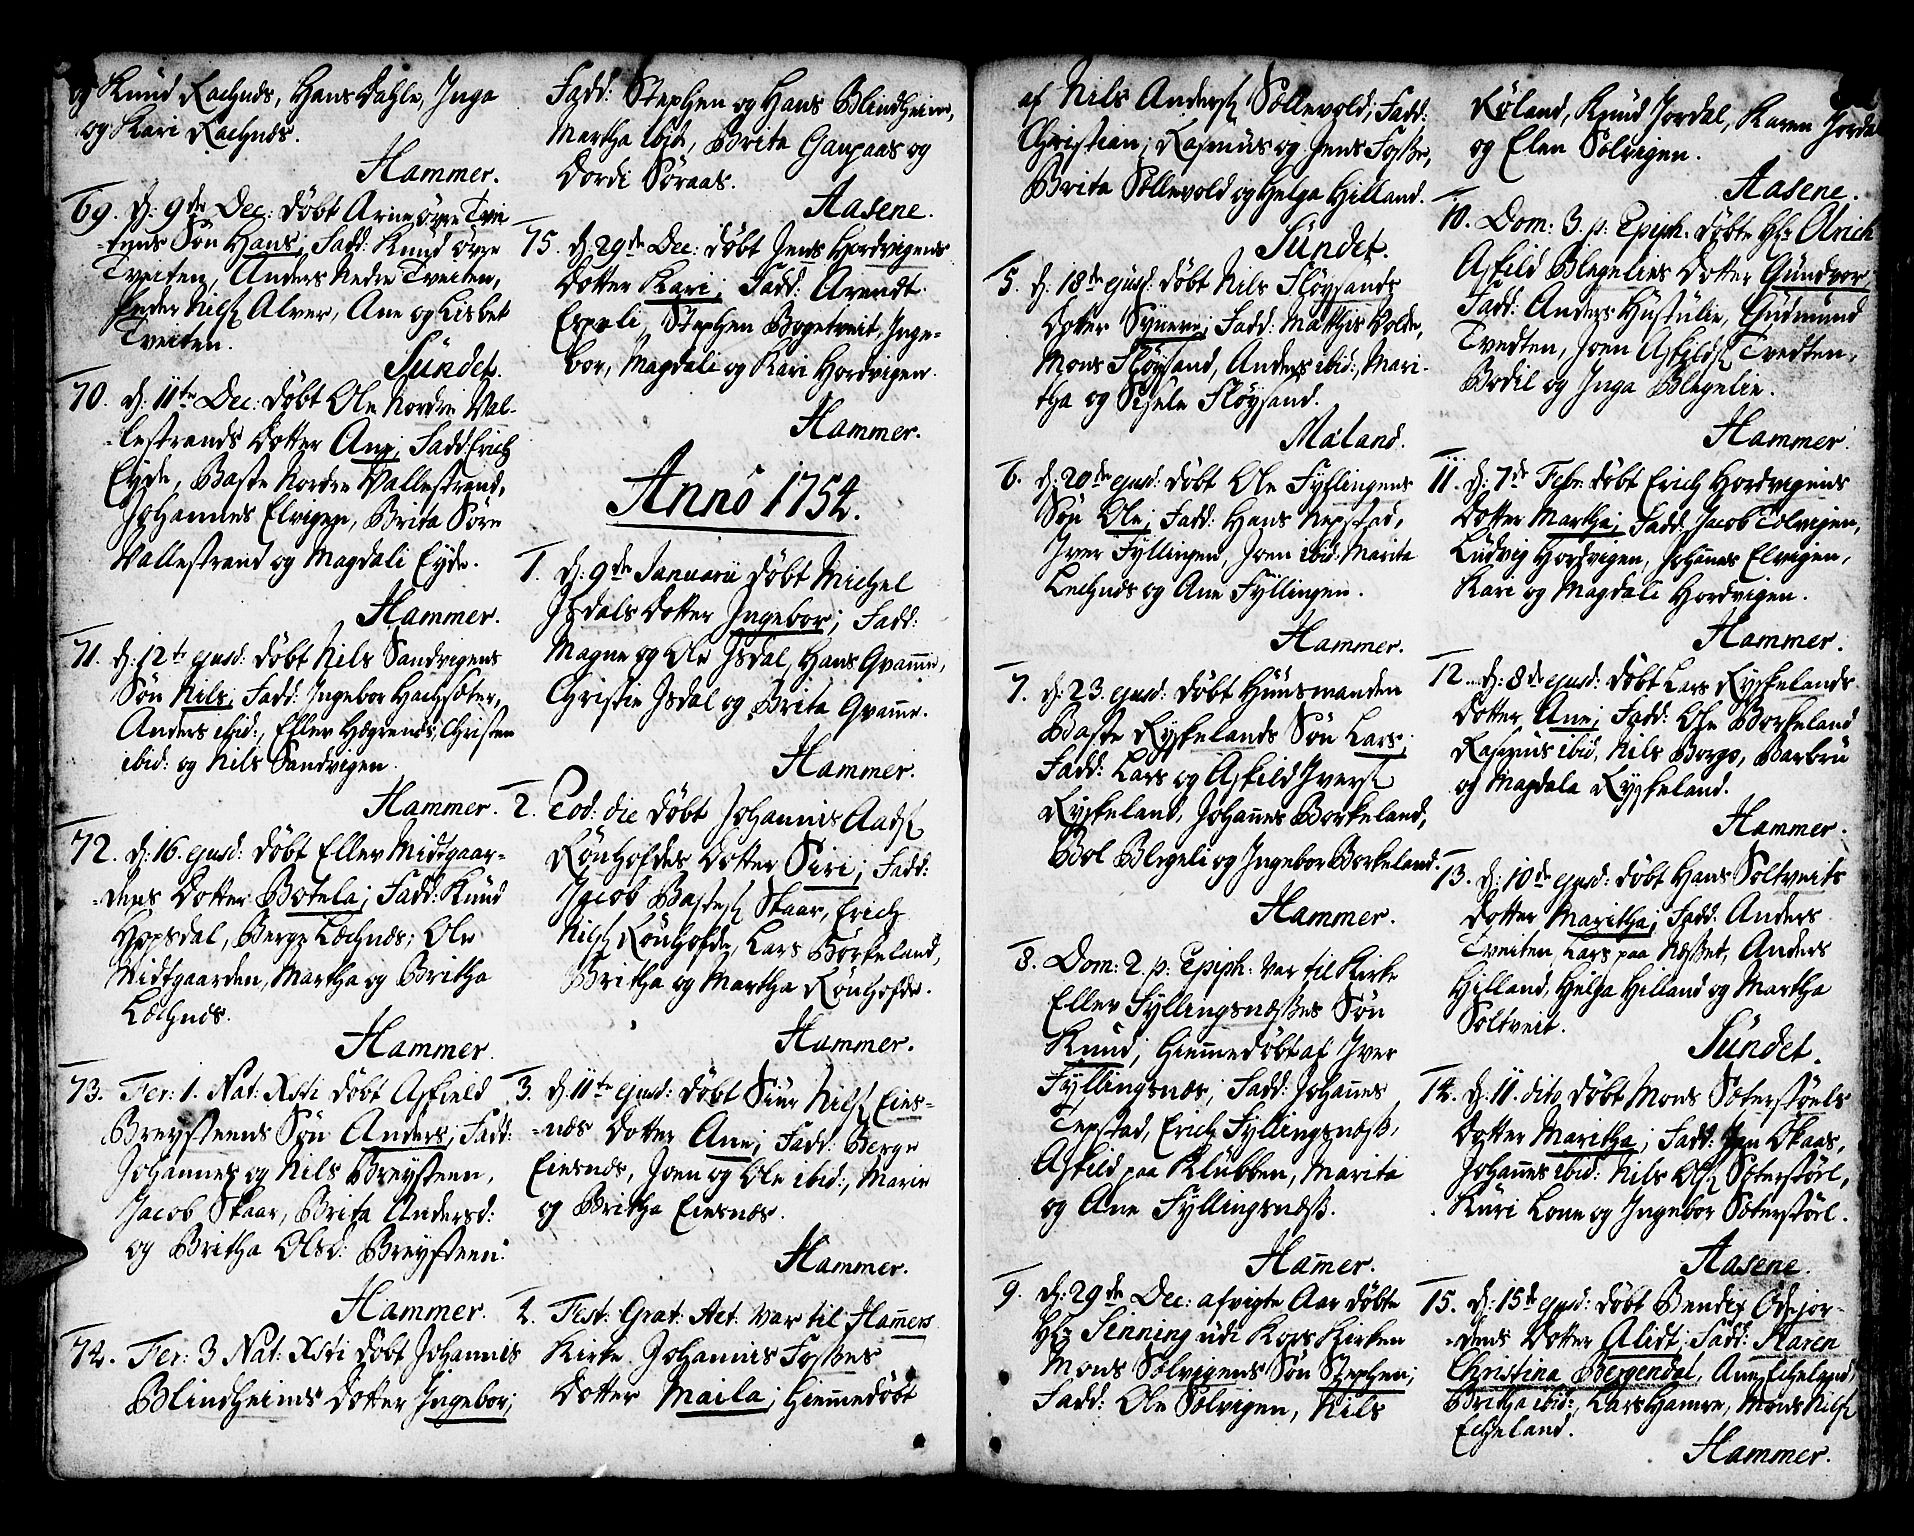 og Knud Røchnes, Hans Dahle, Inga
og Kari Røchnes.
Hammer.
69. d: 9de Dec: döbt Arne övre Tvei-
-tens Sön Hans; Fadd: Knud övre
Tveiten, Anders Nedre Tveiten,
Peder Nilss Alver, Ane og Lisbet
Tveiten.
Sündet.
70. d: 11te Dec: döbt Ole Nordre Val-
-lestrands Dotter Ane; Fadd: Erich
Eyde, Baste Nordre Vallestrand,
Johannes Elvigen, Brita Söre
Vallestrand og Magdali Eyde.
Hammer.
71. d: 12te ejusd: döbt Nils Sandvigens
Sön Nils; Fadd: Ingebor Hachsæter,
Anders ibid:, Ellev Hegrenes, Christen
ibid: og Nils Sandvigen.
Hammer.
72. d: 16. ejusd: döbt Ellev Midtgaar-
-dens Dotter Botela; Fadd: Knud
Hopsdal, Berge Lechnes; Ole
Midtgaarden, Martha og Britha
Lechnes.
Hammer.
73. Fer: 1. Nat: Xsti döbt Askield
Breysteens Sön Anders; Fadd:
Johannes og Nils Breysteen,
Jacob Skaar, Brita Andersd:
og Britha Olsd: Breysteen.
Hammer.
74. Fer: 3 Nat: Xsti döbt Johannis
Blindheims Dotter Ingebor;
Fadd: Stephen og Hans Blindheim,
Martha ibid, Brita Gaupaas og
Dordi Söraas.
Aasene.
75. d: 29de Dec: döbt Jens Hordvigens
Dotter Kari; Fadd: Arendt
Espeli, Stephen Bogetveit, Inge-
bor, Magdali og Kari Hordvigen.
Hammer.
Anno 1754.
1. d: 9de Januarii döbt Michel
Isdals Dotter Ingebor; Fadd:
Magne og Ole Isdal, Hans Qvamme,
Christi Isdal og Brita Qvamme.
Hammer.
2. Eod: die döbt Johannis Aads
Rönhofdes Dotter Siri; Fadd:
Jacob Bastess Skaar, Erich
Nilss Rönhofde, Lars Börkeland,
Britha og Martha Rönhofde.
Hammer.
3. d: 11te ejusd: döbt Siur Nilss Eies-
-nes Dotter Ane; Fadd: Berge
Eiesnes, Joen og Ole ibid:, Marie
og Britha Eiesnes.
Hammer.
4. Fest: Grat: Act: var til Hamers
Kirke Johannis Fosses
Dotter Maila; Hiemmedöbt
af Nils Anderss Sollevold; Fadd:
Christian, Rasmus og Jens Fosse,
Brita Sollevold og Helga Hilland.
Sündet.
5. d: 18de ejusd: döbt Nils Flöysands
Dotter Synneve; Fadd: Matthis Volde,
Mons Flöysand, Anders ibid:, Mari-
tha og Sigele Flöysand.
Mæland.
6. d: 20de ejusd: döbt Ole Fyllingens
Sön Ole; Fadd: Hans Nepstad,
Iver Fyllingen, Joen ibid: Marita
Lechnes og Ane Fyllingen.
Hammer.
7. d: 23. ejusd: döbt Huusmanden
Baste Ryskelands Sön Lars;
Fadd: Lars og Askild Iverss
Ryskeland, Johannes Borkeland,
Bol Blegeli og Ingebor Borkeland.
Hammer.
8. Dom: 2. p: Epiph: var til Kirke
Ellev Fyllingsnessses Sön
Knud; Hiemmedöbt af Iver
Fyllingsnes; Fadd: Johannes
Tepstad, Erich Fyllingsness,
Askild paa Klubben, Marita
og Ane Fyllingsness.
Hamer.
9. d: 29de Dec: afvigte Aar döbte
Hr: Fenning udi Kors Kirken
Mons Solvigens Sön Stephen;
Fadd: Ole Solvigen, Nils
Röland, Knud Jordal, Karen Jordal
og Elen Solvigen.
Aasene.
10. Dom: 3. p: Epiph. döbte Hr: Olrich
Askild Blegelies Dotter Gundvor;
Fadd: Anders Hustulie, Gudmund
Tvedten, Joen Askildss Tvedten,
Bodil og Inga Blegelie.
Hammer.
11. d: 7de Febr: döbt Erich Hordvigens
Dotter Martha; Fadd: Jacob Tolvigen,
Ludvig Hordvigen, Johanes Elvigen,
Kari og Magdali Hordvigen.
Hammer.
12. d: 8de ejusd: döbt Lars Ryskelands
Dotter Ane; Fadd: Ole Borkeland
Rasmus ibid, Nils Borgo, Barbru
og Magdela Ryskeland.
Hammer.
13. d: 10de ejusd: döbt Hans Soltveits
Dotter Maritha; Fadd: Anders
Tveiten, Lars paa Nesset, Anders
Hilland, Helga Hilland og Martha
Soltveit.
Sündet.
14. d: 11. dito döbt Mons Sæterstöels
Dotter Maritha; Fadd: Jan Skaas,
Johannes ibid: Nils Olss Sæterstöel,
Kari Lone og Ingebor Sæterstöel.
Aasene.
15. d: 15de ejusd: döbt Bendix Odejor-
-dens Dotter Alidt; Fadd: Karen
Christina Bergendal, Ane Echeland,
Britha ibid:, Lars Hamre, Mons Nilss
Echeland.
Hammer.